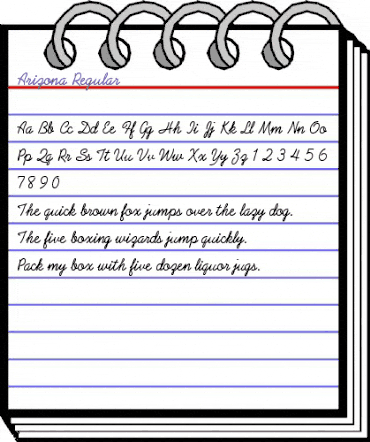 Arizona Regular
Aa Bb Cc Dd Ee Ff Gg Hh Ii Jj Kk Ll Mm Nn Oo
Pp Qq Rr Ss Tt Uu Vv Ww Xx Yy Zz 1 2 3 4 5 6
7 8 9 0
The quick brown fox jumps over the lazy dog.
The five boxing wizards jump quickly.
Pack my box with five dozen liquor jugs.